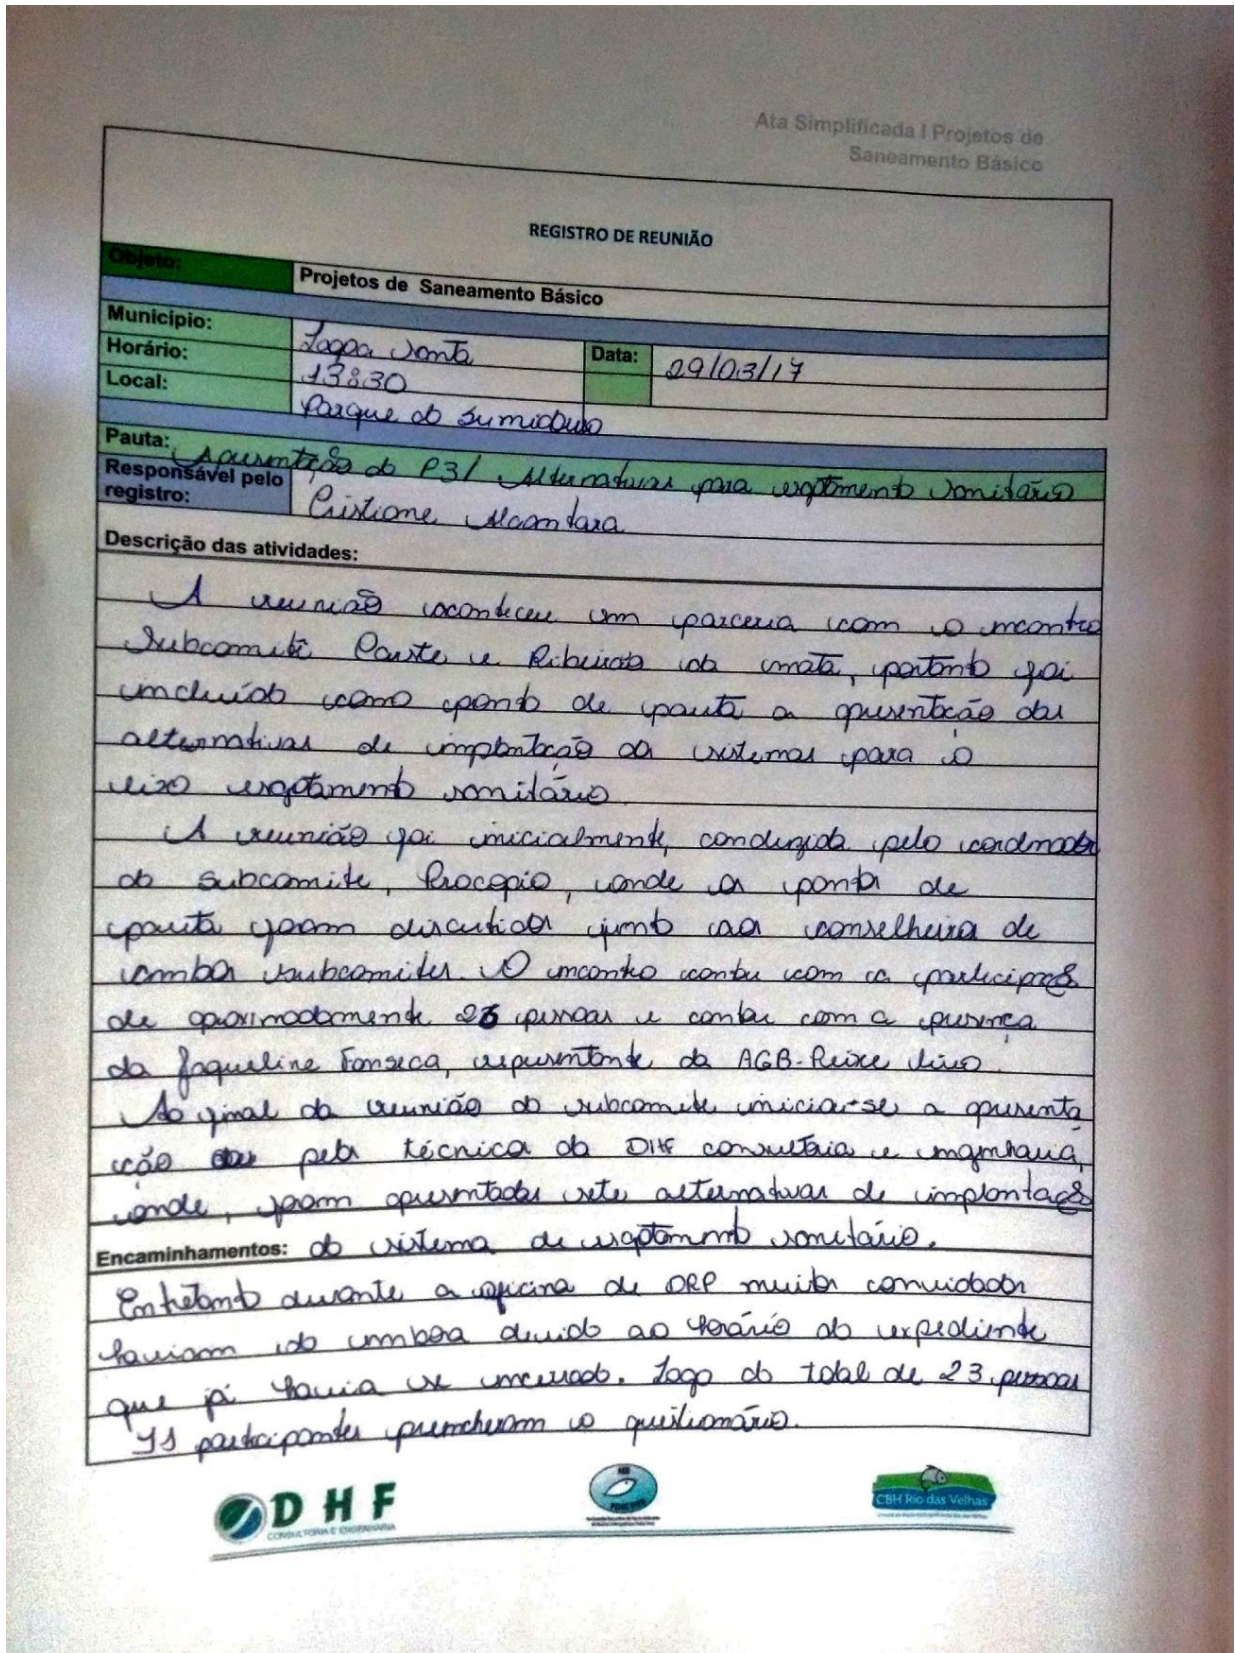 Ata Simplificada I Projetos de
Saneamento Básico
REGISTRO DE REUNIÃO
Objeto: Projetos de Saneamento Básico
Município: Lagoa Santa Data: 29/03/17
Horário: 13:30
Local: Parque do Sumidouro
Pauta: Apresentação do P3/ Alternativas para esgotamento sanitário
Responsável pelo
registro: Cristiane Alcantara
Descrição das atividades:
A reunião aconteceu em parceria com o encontro
Subcomitê Carste e Ribeirão da mata, portanto foi
incluído como ponto de pauta a apresentação das
alternativas de implantação de sistemas para o
eixo esgotamento sanitário.
A reunião foi inicialmente, conduzida pelo coordenador
do subcomite, Procopio, onde os pontos de
pauta foram discutidos junto aos conselheiros de
ambos subcomites. O encontro contou com a participação
de aproximadamente 23 pessoas e contou com a presença
da Jaqueline Fonseca, representante da AGB-Peixe Vivo.
Ao final da reunião do subcomite iniciar-se a apresenta
ção pela técnica da DHF consultoria e engenharia,
onde, foram apresentadas sete alternativas de implantação
Encaminhamentos: do sistema de esgotamento sanitário.
Entretanto durante a oficina de DRP muitos convidados
haviam ido embora devido ao horário do expediente
que já havia se encerrado. Logo do total de 23 pessoas
11 participantes preencheram o questionário.
DHF
CONSULTORIA E ENGENHARIA
CBH Rio das Velhas